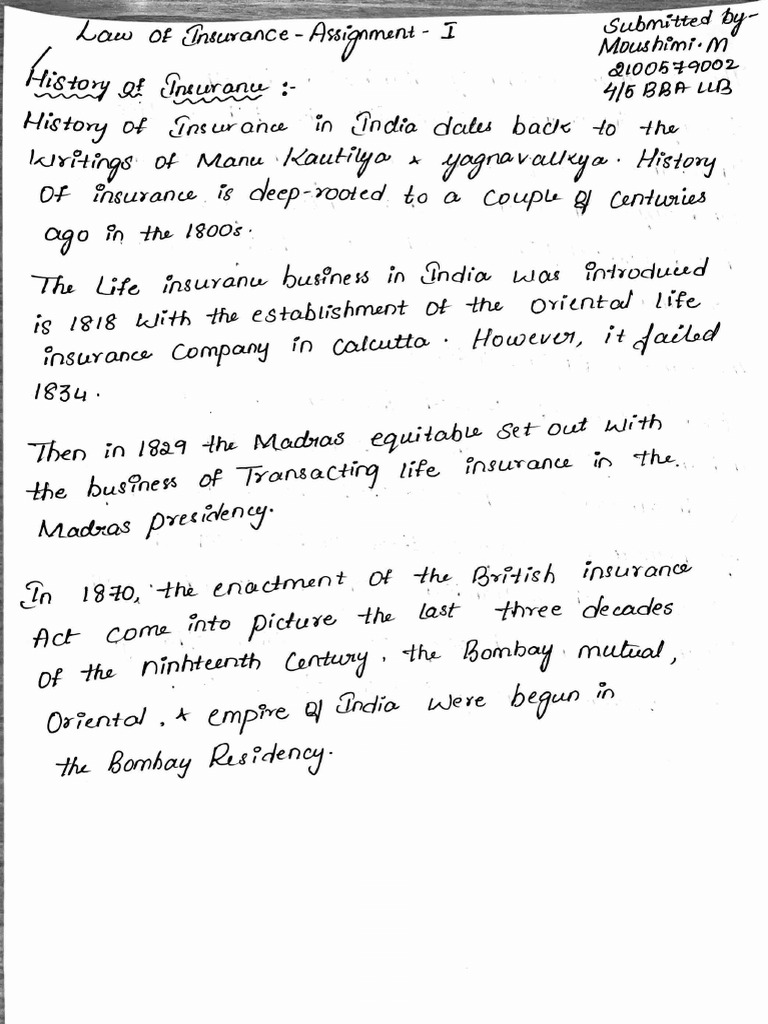 Law of Insurance - Assignment - I
Submitted by-
Moushimi.M
2100579002
4/5 BBA LLB
History of Insurance :-
History of Insurance in India dates back to the
writings of Manu Kautilya & Yagnavalkya. History
of insurance is deep-rooted to a couple of centuries
ago in the 1800s.
The Life insurance business in India was introduced
is 1818 with the establishment of the Oriental life
insurance company in Calcutta. However, it failed
1834.
Then in 1829 the Madras equitable set out with
the business of Transacting life insurance in the.
Madras presidency.
In 1870, the enactment of the British insurance
Act come into picture the last three decades
of the ninhteenth century, the Bombay mutual,
Oriental, & empire of India were begun in
the Bombay Residency.